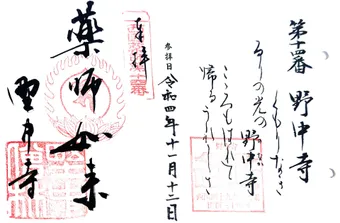 第十四番 野中寺
くもりなき
るりの光の 野中寺
こころもはれて
帰るうれしさ
参拝日 令和四年十一月十二日
奉拝
藥師如来
野中寺